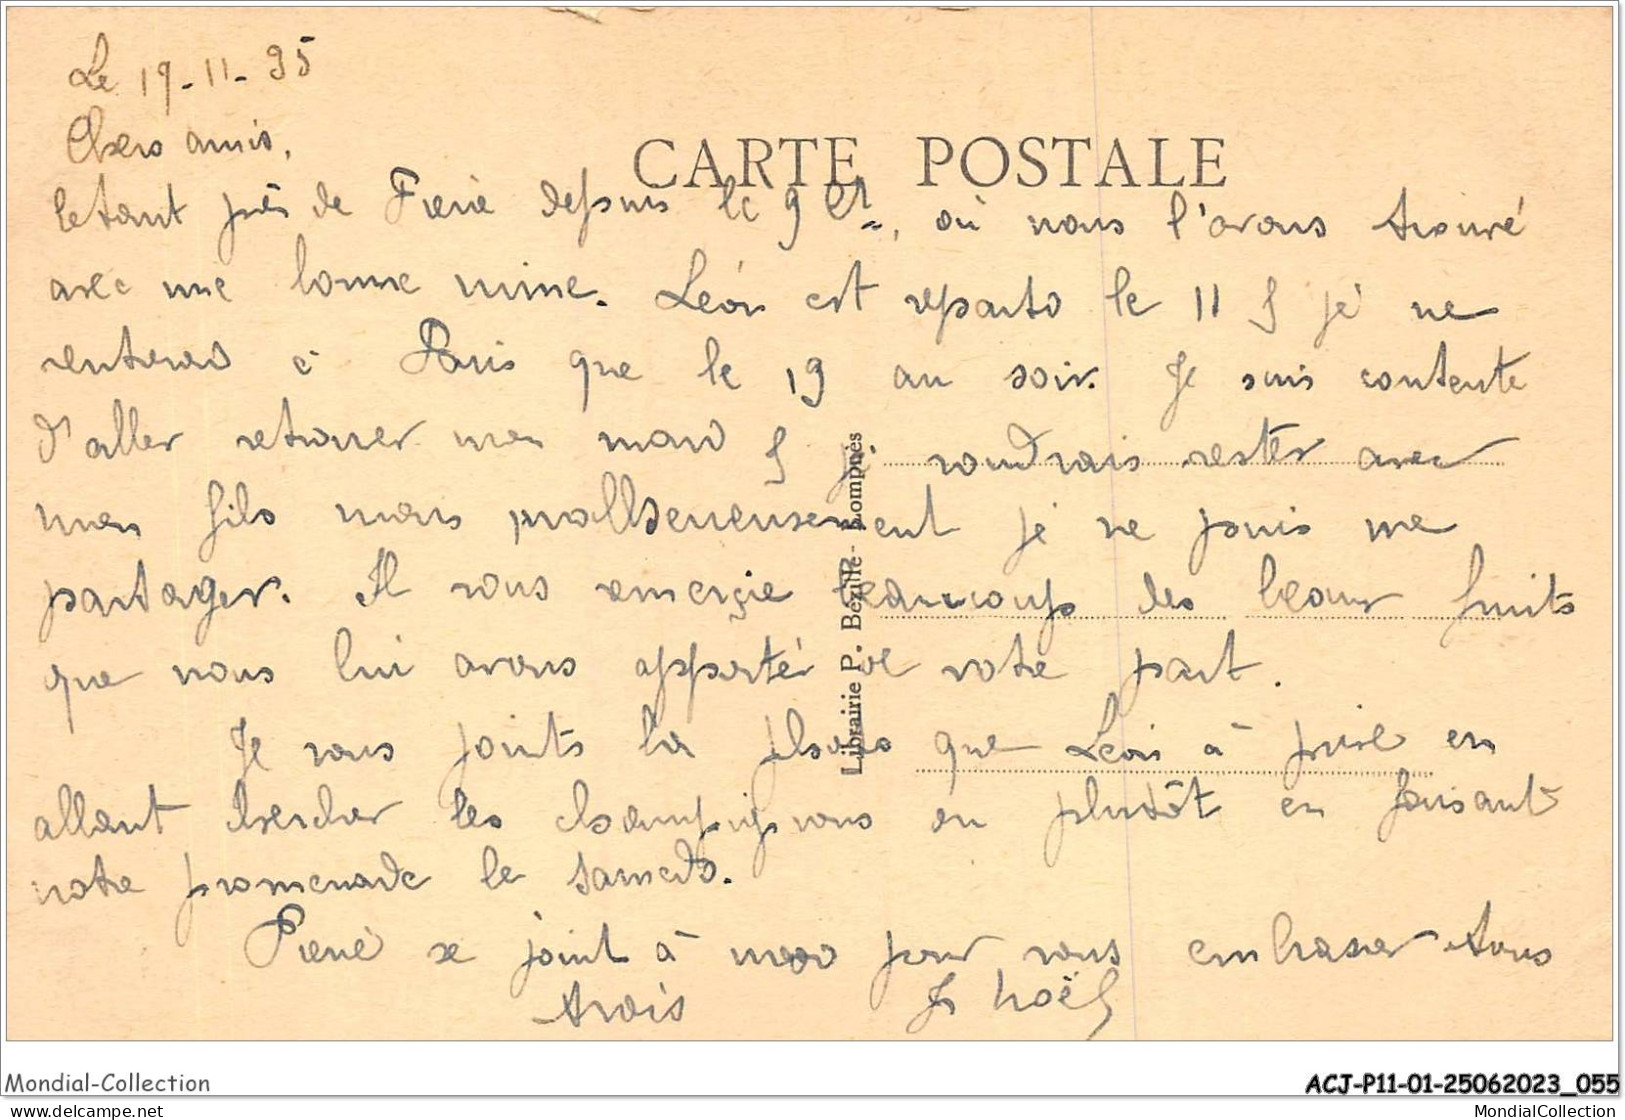 Le 19-11-35
Chers amis,
CARTE POSTALE
étant près de Pierre depuis le 9 ct, où nous l'avons trouvé
avec une bonne mine. Léon est reparti le 11 & je ne
rentrerai à Paris que le 19 au soir. Je suis contente
d'aller retrouver mon mari & je voudrais rester avec
mon fils mais malheureusement je ne puis me
partager. Il vous remercie beaucoup des beaux fruits
que nous lui avons apporté de votre part.
Je vous joints la photo que Léon à prise en
allant chercher les champignons ou plutôt en faisant
notre promenade le samedi.
Pierre se joint à moi pour vous embrasser tous
trois
Noël
Librairie P. Bézille - Lompnès
Mondial-Collection
ACJ-P11-01-25062023_055
www.delcampe.net
MondialCollection